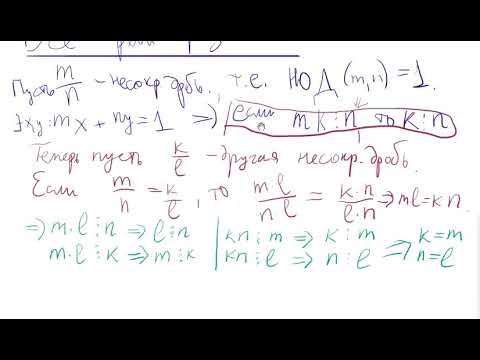 Пусть m/n – несокр. дробь, т.е. НОД (m,n) = 1.
∃x,y: mx + ny = 1 ⇒ если mk ⋮ n то k ⋮ n
Теперь пусть k/l – другая несокр. дробь.
Если m/n = k/l, то ml/nl = k·n/l·n ⇒ ml = kn
⇒ m·l ⋮ n ⇒ l ⋮ n | kn ⋮ m ⇒ k ⋮ m ⇒ k = m
m·l ⋮ k ⇒ m ⋮ k | kn ⋮ l ⇒ n ⋮ l n = l